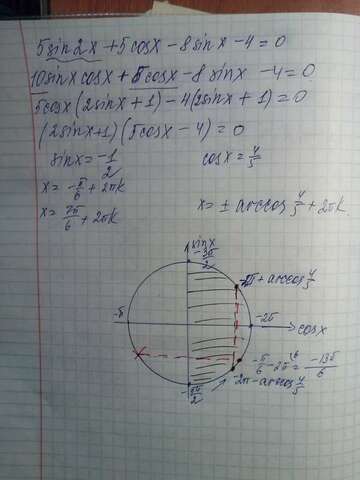 5sin2x + 5cosx - 8sinx - 4 = 0
10sinxcosx + 5cosx - 8sinx - 4 = 0
5cosx(2sinx + 1) - 4(2sinx + 1) = 0
(2sinx+1)(5cosx - 4) = 0
sinx = -1/2 cosx = 4/5
x = -π/6 + 2πk
x = 7π/6 + 2πk x = ± arccos 4/5 + 2πk
sinx
-3π/2
+ arccos 4/5
-π -2π cosx
-π/6 - 2π = -13π/6
-2π - arccos 4/5